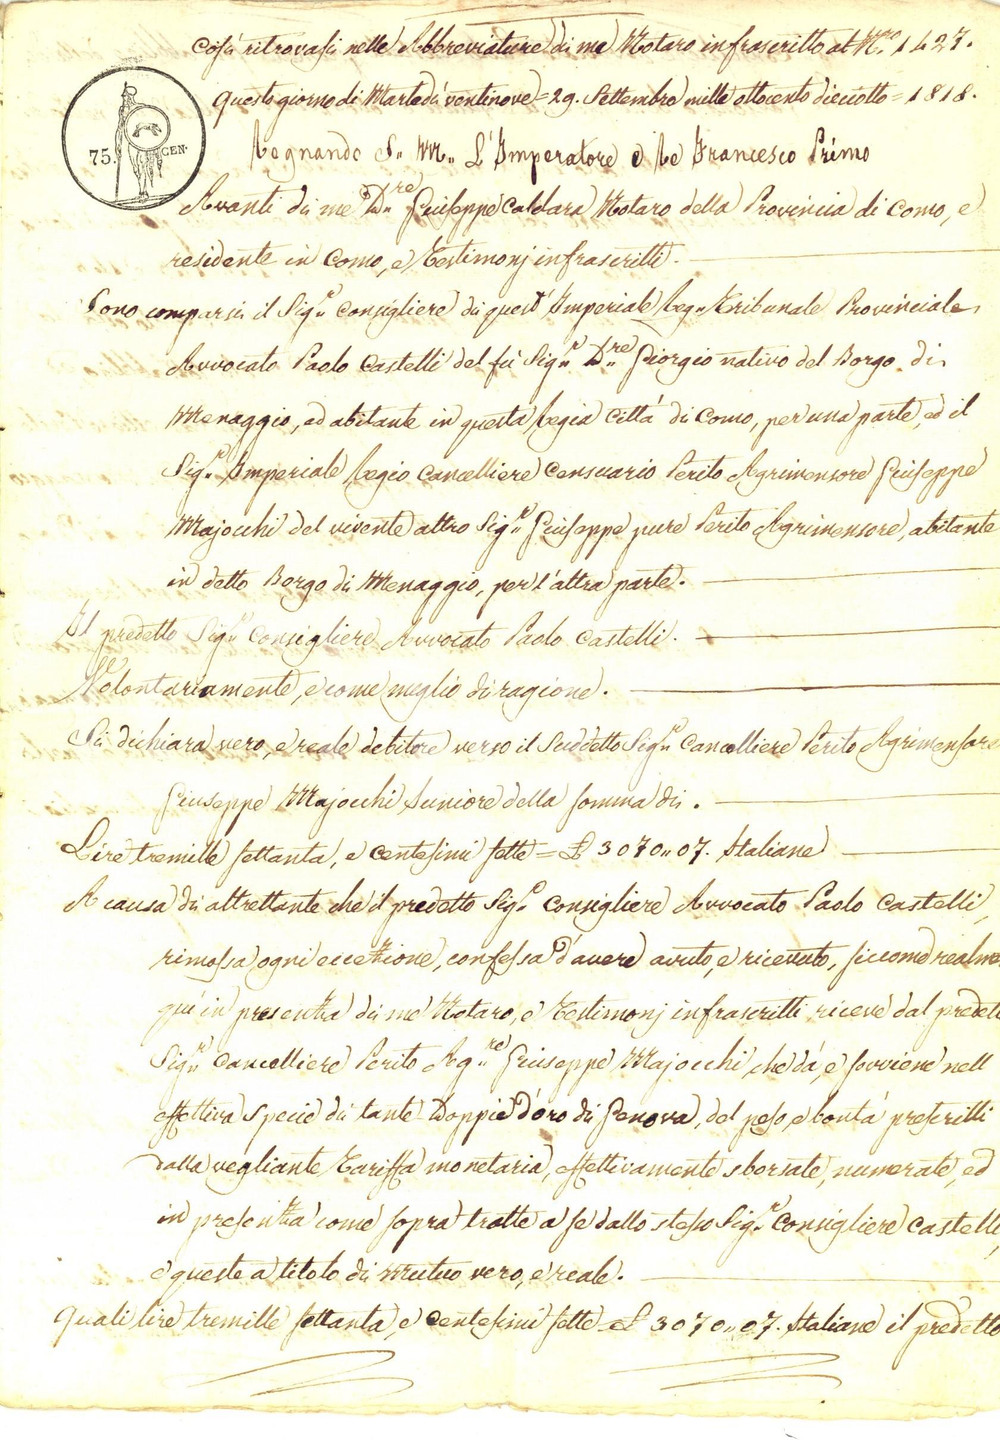 Così ritrovasi nelle Abbreviature di me Notaro infrascritto al N.ro 1427.
Questo giorno di Martedì ventinove = 29. Settembre mille ottocento dieciotto = 1818.
75. CEN.
Regnando S. M. L'Imperatore e Re Francesco Primo
Avanti di me D.re Giuseppe Caldara Notaro della Provincia di Como, e
residente in Como, e Testimonj infrascritti.
Sono comparsi il Sig.r Consigliere di quest'Imperiale Reg.o Tribunale Provinciale
Avvocato Paolo Castelli del fù Sig.r D.re Giorgio nativo del Borgo di
Menaggio, ed abitante in questa Regia Città di Como, per una parte, ed il
Sig.r Imperiale Regio Cancelliere Censuario Perito Agrimensore Giuseppe
Majocchi del vivente altro Sig.r Giuseppe pure Perito Agrimensore, abitante
in detto Borgo di Menaggio, per l'altra parte.
Il predetto Sig.r Consigliere Avvocato Paolo Castelli.
Volontariamente, e come meglio di ragione.
Si dichiara vero, e reale debitore verso il suddetto Sig.r Cancelliere Perito Agrimensore
Giuseppe Majocchi Juniore della somma di.
Lire tremille settanta, e centesimi sette = £ 3070,,07. Italiane
A causa di altrettante che il predetto Sig.r Consigliere Avvocato Paolo Castelli,
rimossa ogni eccezione, confessa d'avere avuto, e ricevuto, siccome realme
qui in presenza di me Notaro, e Testimonj infrascritti riceve dal predett
Sig.r Cancelliere Perito Ag.re Giuseppe Majocchi, che dà, e sovviene nell
effettiva specie di tante Doppie d'oro di Genova, del peso, e bontà prescritti
dalla vegliante Tariffa monetaria, effettivamente sborsate, numerate, ed
in presenza come sopra tratte a se dallo stesso Sig.r Consigliere Castelli,
e queste a titolo di mutuo vero, e reale.
Quali lire tremille settanta, e centesimi sette = £ 3070,,07. Italiane il predetto